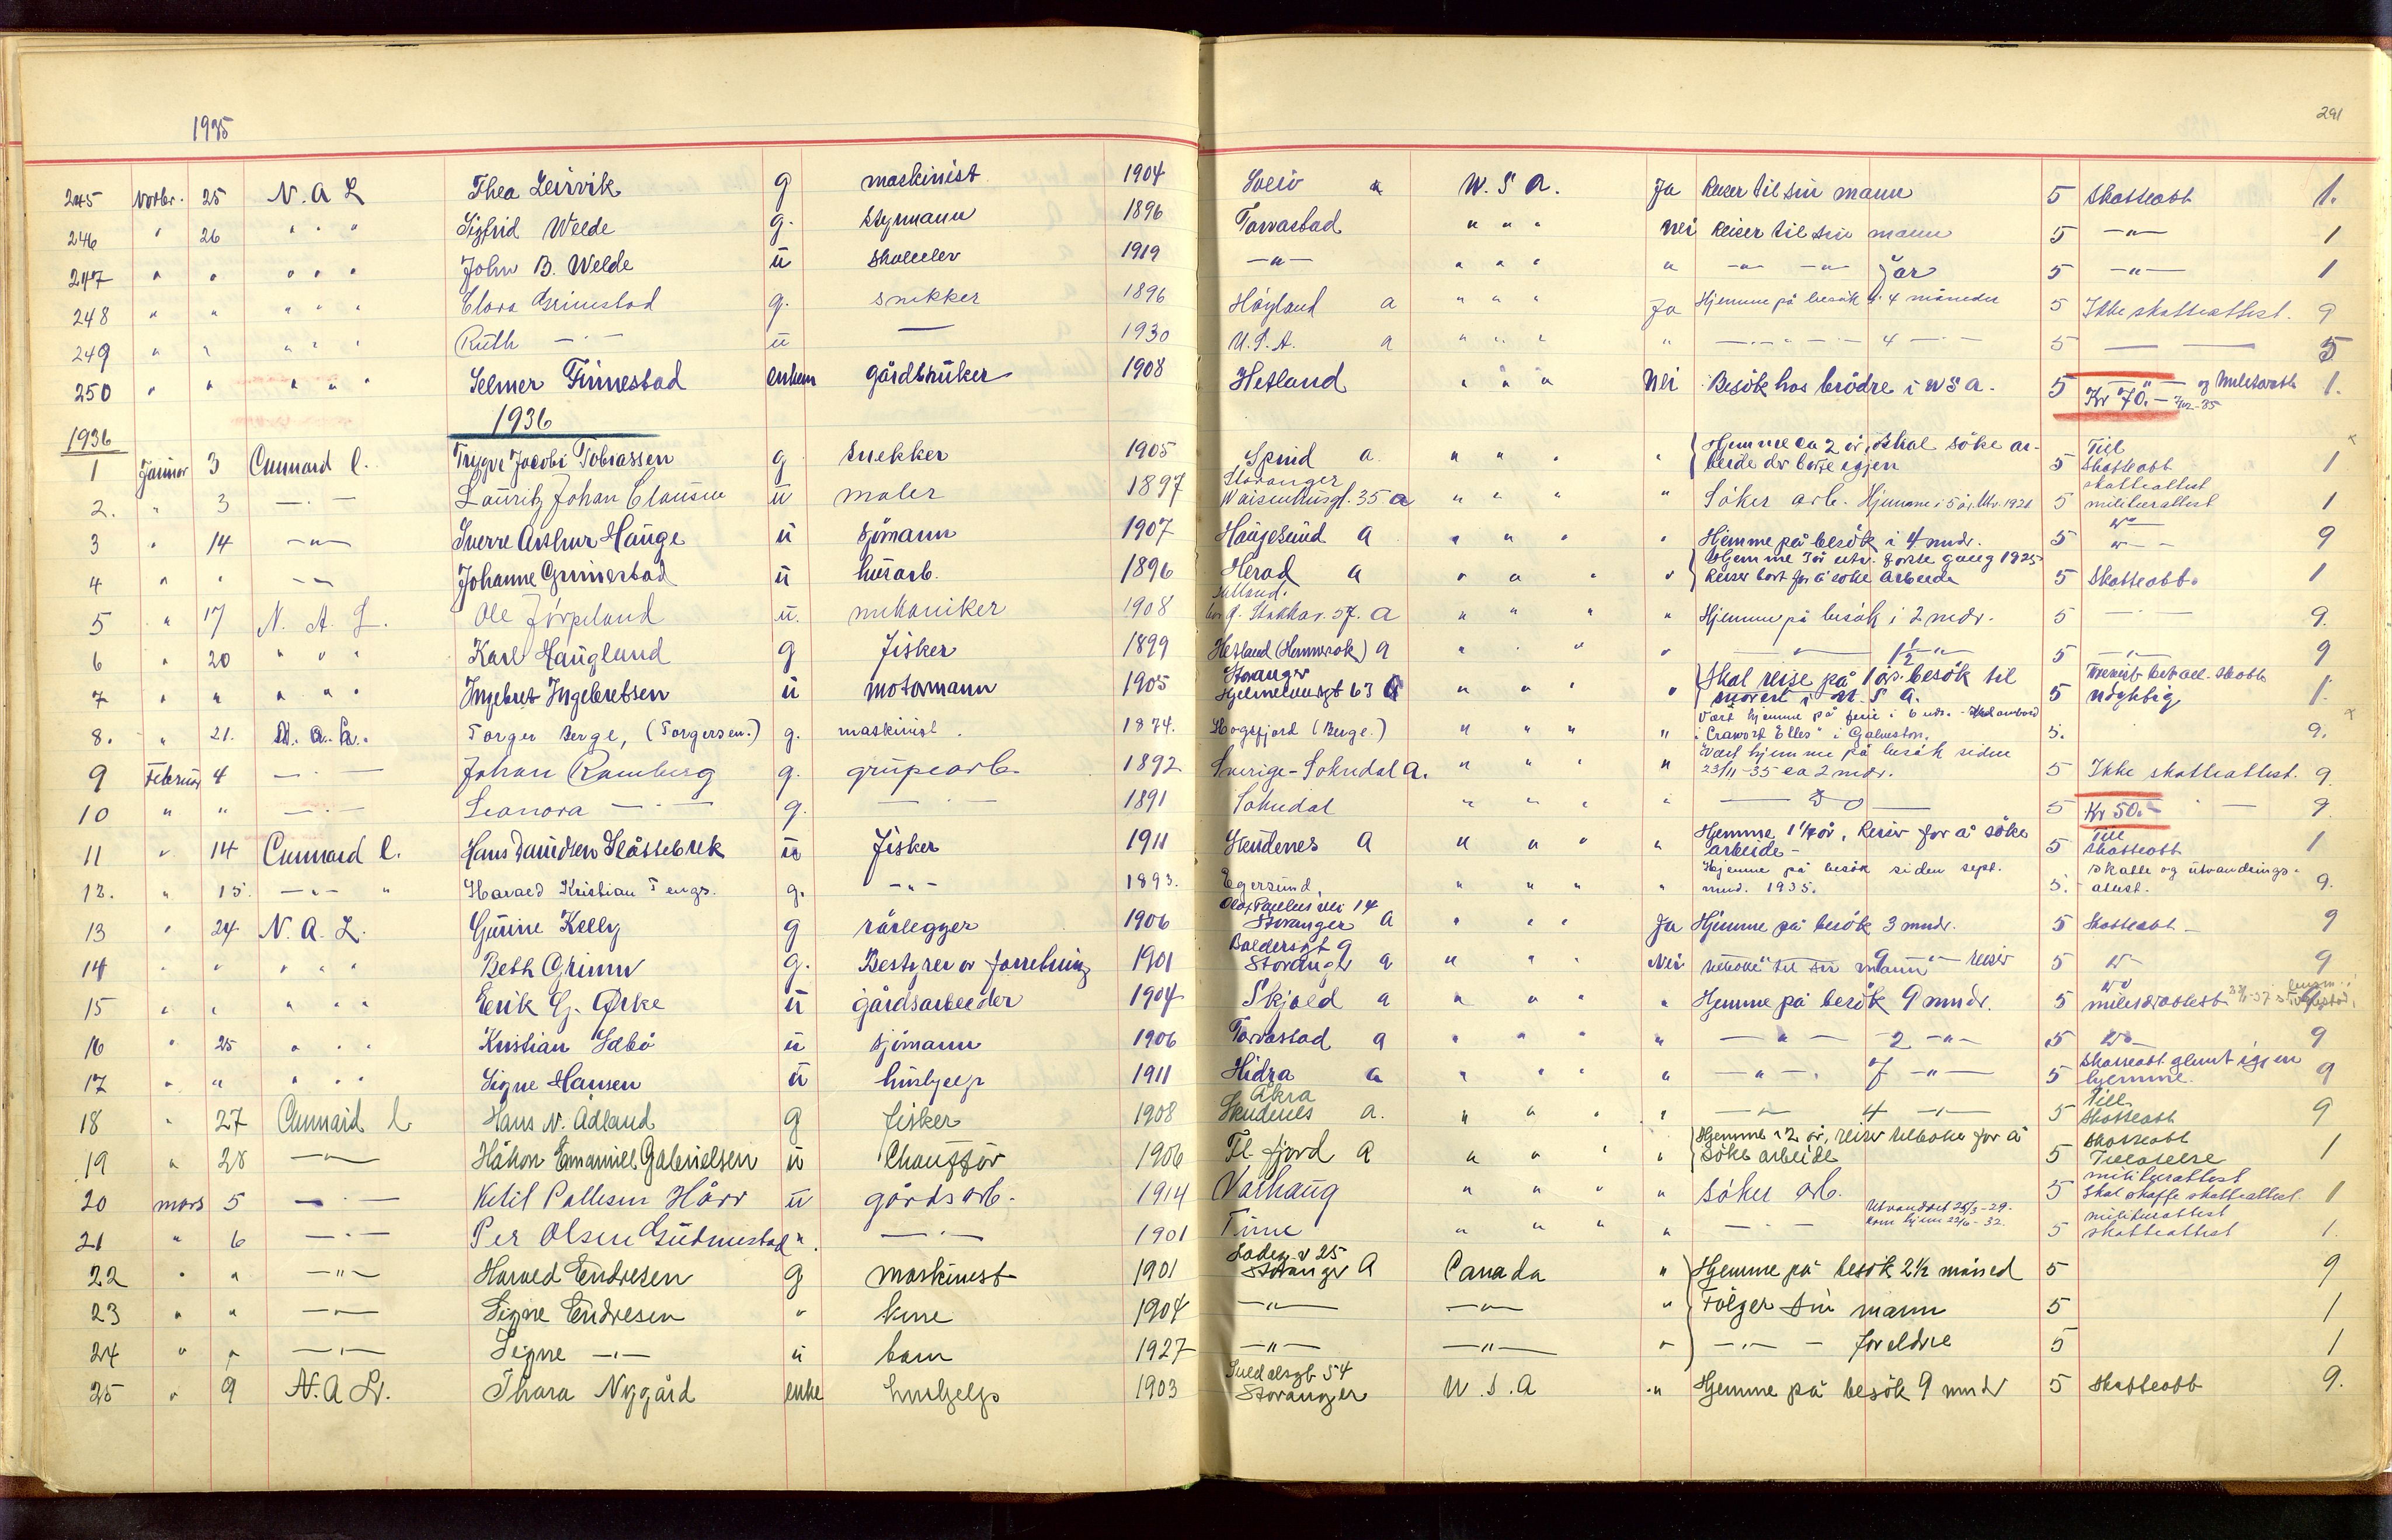 1935
291
245 Novbr. 25 N. A L Thea Leirvik g maskinist 1904 a U. S A. Ja Reiser til sin mann 5 Skatteatt 1.
246 " 26 " " " Sigfrid Welde g. Styrmann 1896 Torvastad " " " Nei Reiser til sin mann 5 —"— 1
247 " " " " " John B. Welde u skoleelev 1919 —"— " " " " —"— —"— far 5 —"— 1
248 " " " " " Clara Grimstad g. snekker 1896 Høyland a " " " Ja Hjemme på besøk i 4 måneder 5 Ikke skatteattest. 9
249 " " " " " Ruth —"— u — 1930 U.S.A. a " " " " —"— 4 —"— 5 — — 5
250 " " " " " Selmer Finnestad enkem gårdbruker 1908 Hetland " " " Nei Besøk hos brødre i USA. 5 —"— og Militæratt 1.
Kr 70.— 2/12-35
1936
1936
1 Januar 3 Cunnard l. Trygve Jacobi Tobiassen g snekker 1905 Spind a. " " " " Hjemme ca 2 år, skal søke ar-
beide der borte igjen 5 Till
Skatteatt 1
2. " 3 —"— Lauritz Johan Clausen u maler 1897 Stavanger
Waisenhusgt. 35 a " " " " Søker arb. Hjemme i 5 år. Utv. 1926 5 skatteattest
militærattest 1
3 " 14 —"— Sverre Arthur Hauge u sjømann 1907 Haugesund a " " " " Hjemme på besøk i 4 mndr. 5 —"— 9
4 " " —"— Johanne Grimestad u husarb. 1896 Herad a " " " " Hjemme 3 år utv. første gang 1925
Reiser bort for å søke Arbeide 5 Skatteatt. 1
5 " 17 N. A. L. Ole Jørpeland u. mekaniker 1908 Stokkav. 57. a " " " " Hjemme på besøk i 2 mdr. 5 —"— 9.
6 " 20 " " " Karl Haugland g fisker 1899 Hetland a " " " " —"— 1½ —"— 5 —"— 9
7 " " " " " Ingebret Ingebretsen u motormann 1905 Stavanger
63 a " " " " Skal reise på 1 års besøk til
moren i U. S A. 5 betalt skatt
1.
8. " 21. N. A. L. Torger Berge, (Torgersen.) g. maskinist. 1874. Høgsfjord (Berge.) " " " " Vært hjemme på ferie i 6 mdr.
i Galveston. 5. 9.
9 Februar 4 —"— Johan Ramberg g. grupearb. 1892 Sverige-Sokndal a. " " " " Vært hjemme på besøk siden
23/11-35 ca 2 mdr. 5 Ikke skatteattest. 9
10 " " —"— Leonora —"— g. —"— 1891 Sokndal " " " " —"— 5 Kr 50.— " — 9.
11 " 14 Cunnard l. Hans Danielsen Slåttebrek u fisker 1911 Skudenes a " " " " Hjemme 1½ år, Reiser for å søke
arbeide— 5 Till
skatteatt 1
12. " 15. —"— " Harald Kristian Tengs. g. —"— 1893. Egersund, " " " " Hjemme på besøk siden sept.
mnd. 1935. 5. skatte og utvandrings-
attest. 9.
13 " 24 N. A. L. Gunine Kelly g rørlegger 1906 Olaf Paulus vei 14
Stavanger a " " " Ja Hjemme på besøk 3 mndr. 5 Skatteatt — 9
14 " " " " " Beth Grimm g. Bestyrer av forretning 1901 Baldersgt 9
Stavanger a " " " Nei —"— 9 —"— reiser
tilbake til sin mann 5 —"— 9
15 " " " " " Erik G. Ørke u gårdsarbeider 1904 Skjold a " " " " Hjemme på besøk 9 mndr. 5 —"—
militærattest 9
16 " 25 " " " Kristian Sæbø u sjømann 1906 Torvastad a " " " " —"— 2 —"— 5 —"— 9
17 " " " " " Signe Hansen u hushjelp 1911 Hidra a " " " " —"— 7 —"— 5 Skatteatt glemt igjen
hjemme. 9
18 " 27 Cunnard l Hans N. Ådland g fisker 1908 Åkra
Skudenes a. " " " " —"— 4 —"— 5 Till.
Skatteatt 9
19 " 28 —"— Håkon Emanuel Gabrielsen u Chauffør 1906 Fl. fjord a " " " " Hjemme i 2 år, reiser tilbake for å
søke arbeide 5 skatteatt
Tillatelse 1
20 mars 5 —"— Ketil Pallesen Hårr u gårdsarb. 1914 Varhaug " " " " Søker arb. 5 militærattest
Skal skaffe skatteattest. 1
21 " 6 —"— Per Olsen Gudmestad ". —"— 1901 Time " " " " —"— Utvandret 25/3-29.
kom hjem 22/6-32. 5 militærattest
skatteattest 1.
22 " " —"— Harald Endresen g maskinist 1901 v 25
Stavanger a Canada " Hjemme på besøk 2½ måned 5 9
23 " " —"— Signe Endresen " kone 1904 —"— —"— " Følger sin mann 5 1
24 " " —"— Signe —"— u barn 1927 —"— —"— " —"— — foreldre 5 1
25 " 9 N. A L. Thara Nygård enke hushjelp 1903 Suldalsgt 54
Stavanger U. S. A " Hjemme på besøk 9 mndr 5 skatteatt 9.